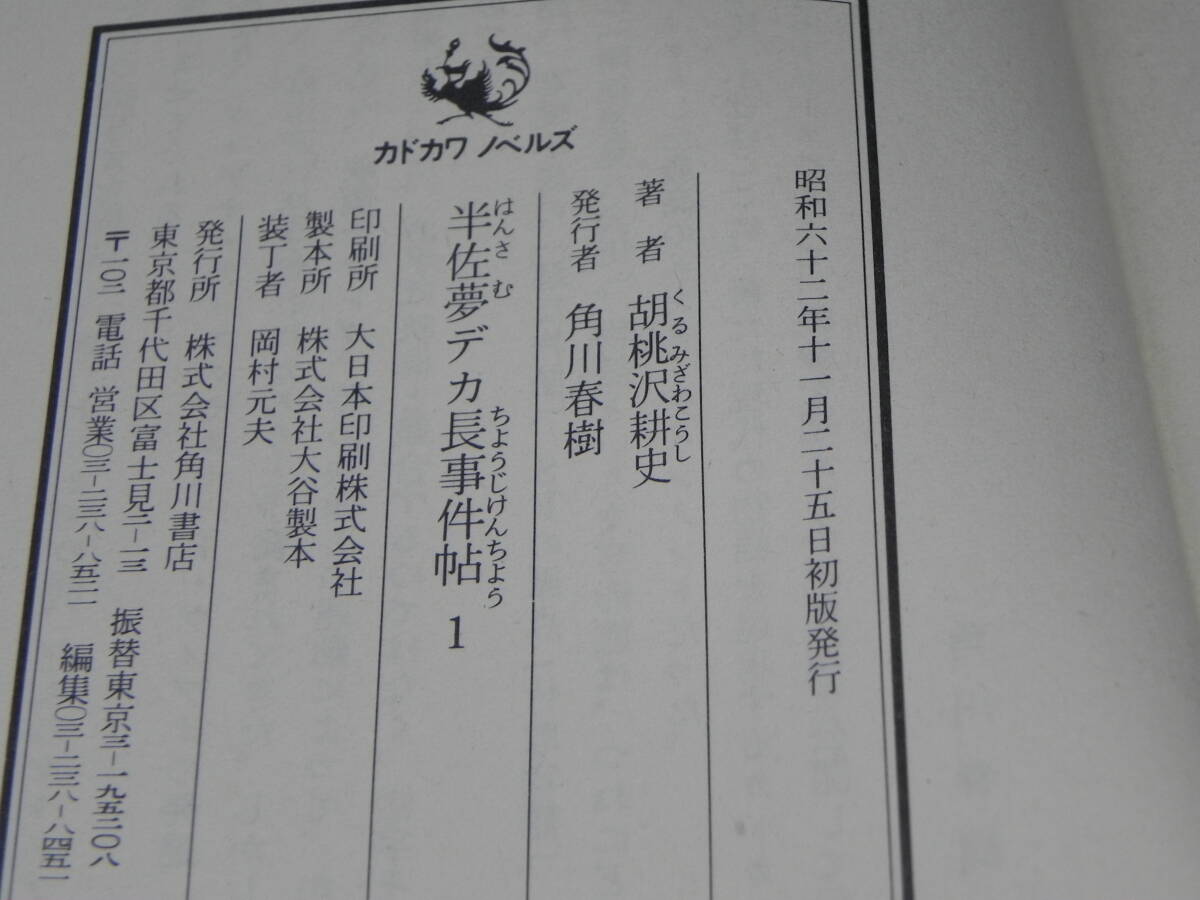 カドカワ ノベルズ
昭和六十二年十一月二十五日初版発行
著者 胡桃沢耕史
くるみざわこうし
発行者 角川春樹
半佐夢デカ長事件帖 1
はんさむ ちようじけんちよう
印刷所 大日本印刷株式会社
製本所 株式会社大谷製本
装丁者 岡村元夫
発行所 株式会社角川書店
東京都千代田区富士見二-一三 振替東京三-一九五二〇八
〒一〇二 電話 営業〇三-二三八-八五二一 編集〇三-二三八-八四五一